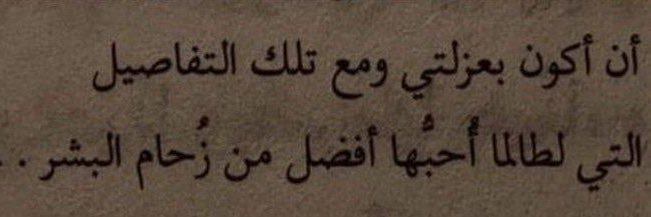 أن أكون بعزلتي ومع تلك التفاصيل
التي لطالما أُحبُّها أفضل من زُحام البشر . .